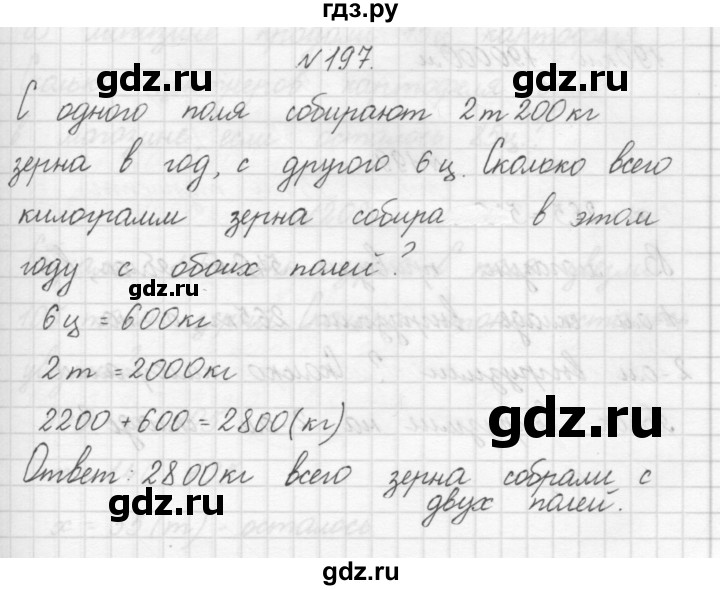 гдз.ру
N197.
gdz.ru gdz.ru
С одного поля собирают 2т 200кг
зерна в год, с другого 6ц. Сколько всего
килограмм зерна собира в этом
году с обоих полей?
gdz.ru
6ц = 600кг
2т = 2000кг
gdz.ru
2200 + 600 = 2800(кг)
Ответ: 2800кг всего зерна собрали с
двух полей.
gdz.ru
gdz.ru